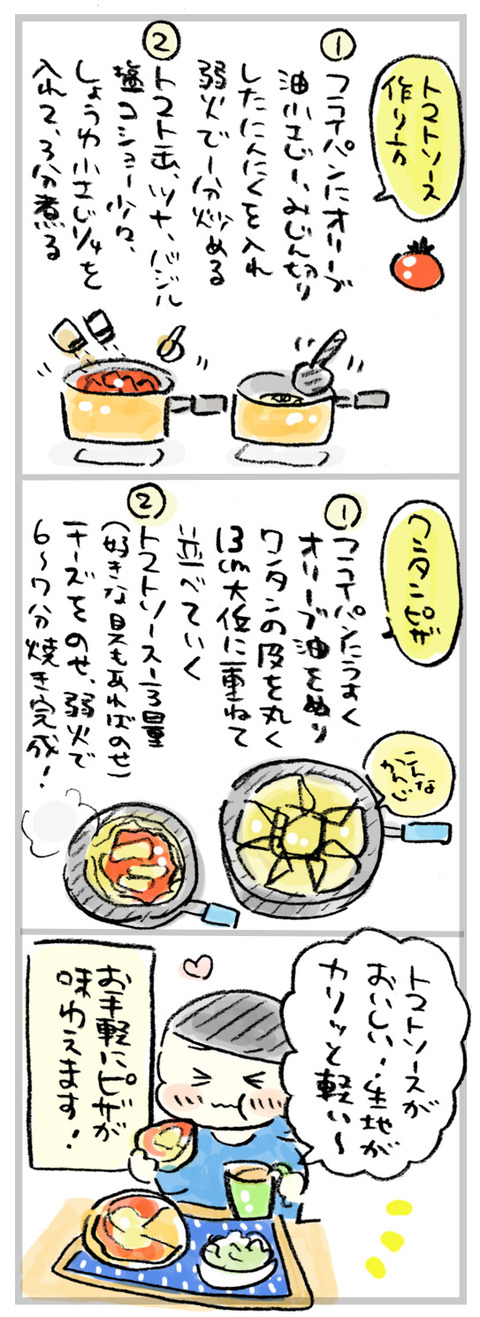 トマトソース
作り方
①
フライパンにオリーブ
油小さじ1、みじん切り
したにんにくを入れ
弱火で1分炒める
②
トマト缶、ツナ、バジル
塩コショー少々、
しょうゆ小さじ1/4を
入れて、3分煮る
ワンタンピザ
①
フライパンにうすく
オリーブ油をぬり
ワンタンの皮を丸く
13cm大位に重ねて
並べていく
②
トマトソース1/3量
(好きな具もあればのせ)
チーズをのせ、弱火で
6〜7分焼き完成!
こんな
かんじ
トマトソースが
おいしい!生地が
カリッと軽い〜
お手軽にピザが
味わえます!